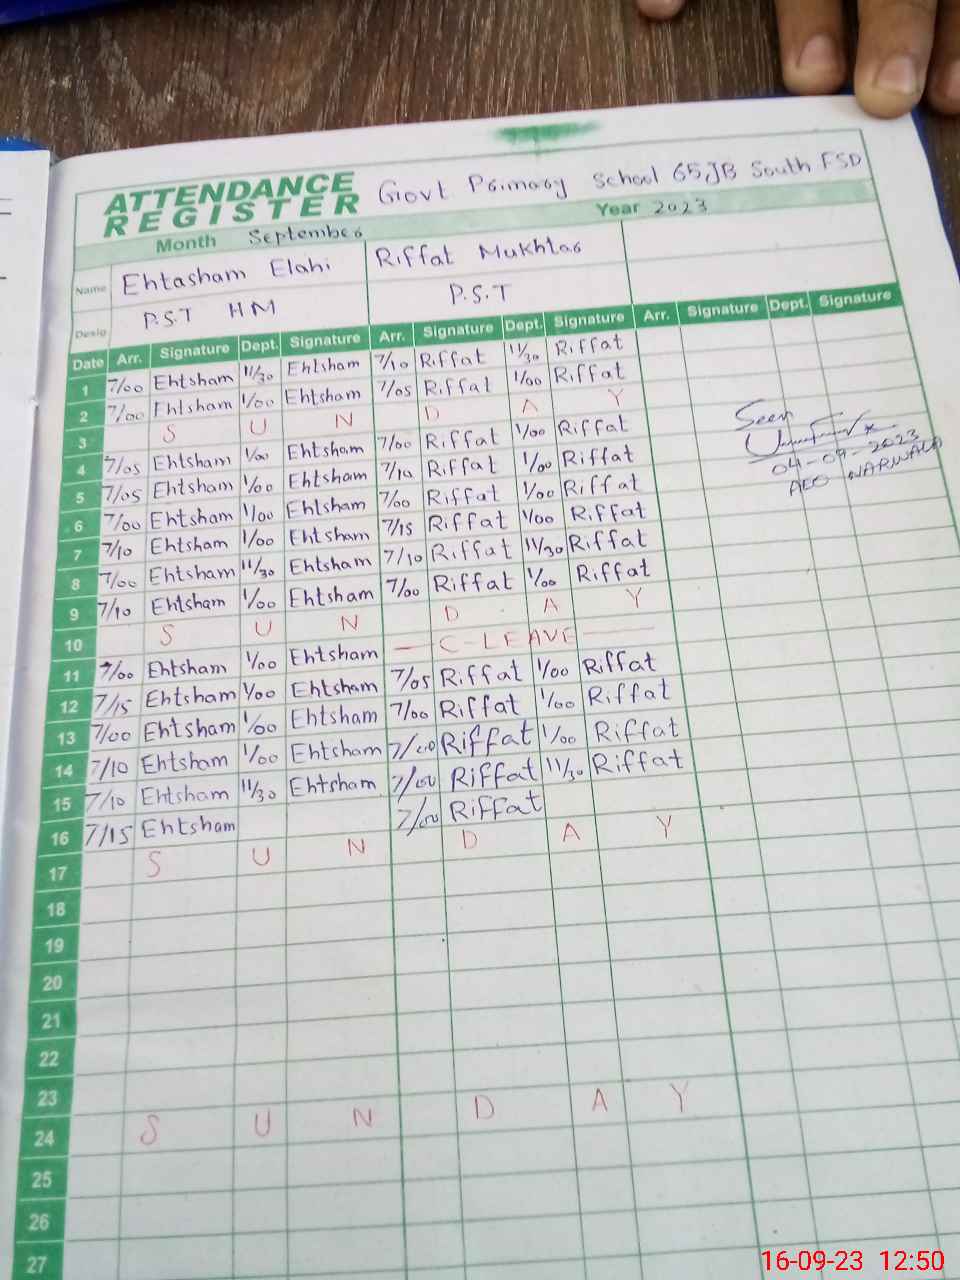 ATTENDANCE REGISTER Govt Primary School 65JB South FSD
Month September Year 2023
Name Ehtasham Elahi Riffat Mukhtar
Desig P.S.T HM P.S.T
Date Arr. Signature Dept. Signature Arr. Signature Dept. Signature Arr. Signature Dept. Signature
1 7/00 Ehtsham 11/30 Ehtsham 7/10 Riffat 11/30 Riffat
2 7/00 Ehtsham 1/00 Ehtsham 7/05 Riffat 1/00 Riffat
3 S U N D A Y
4 7/05 Ehtsham 1/00 Ehtsham 7/00 Riffat 1/00 Riffat
5 7/05 Ehtsham 1/00 Ehtsham 7/10 Riffat 1/00 Riffat
6 7/00 Ehtsham 1/00 Ehtsham 7/00 Riffat 1/00 Riffat
7 7/10 Ehtsham 1/00 Ehtsham 7/15 Riffat 1/00 Riffat
8 7/00 Ehtsham 11/30 Ehtsham 7/10 Riffat 11/30 Riffat
9 7/10 Ehtsham 1/00 Ehtsham 7/00 Riffat 1/00 Riffat
10 S U N D A Y
11 7/00 Ehtsham 1/00 Ehtsham — C-LEAVE —
12 7/15 Ehtsham 1/00 Ehtsham 7/05 Riffat 1/00 Riffat
13 7/00 Ehtsham 1/00 Ehtsham 7/00 Riffat 1/00 Riffat
14 7/10 Ehtsham 1/00 Ehtsham 7/00 Riffat 1/00 Riffat
15 7/10 Ehtsham 11/30 Ehtsham 7/00 Riffat 11/30 Riffat
16 7/15 Ehtsham 7/00 Riffat
17 S U N D A Y
18
19
20
21
22
23
24 S U N D A Y
25
26
27
Seen
04-09-2023
AEO NARWALA
16-09-23 12:50